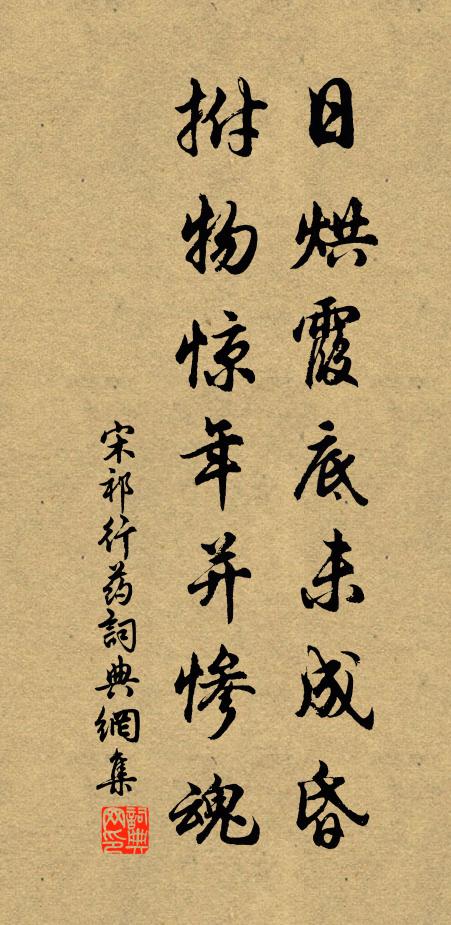 日烘霞底未成昏
拊物惊年并惨魂
宋祁行药詞典網集
詞典网印